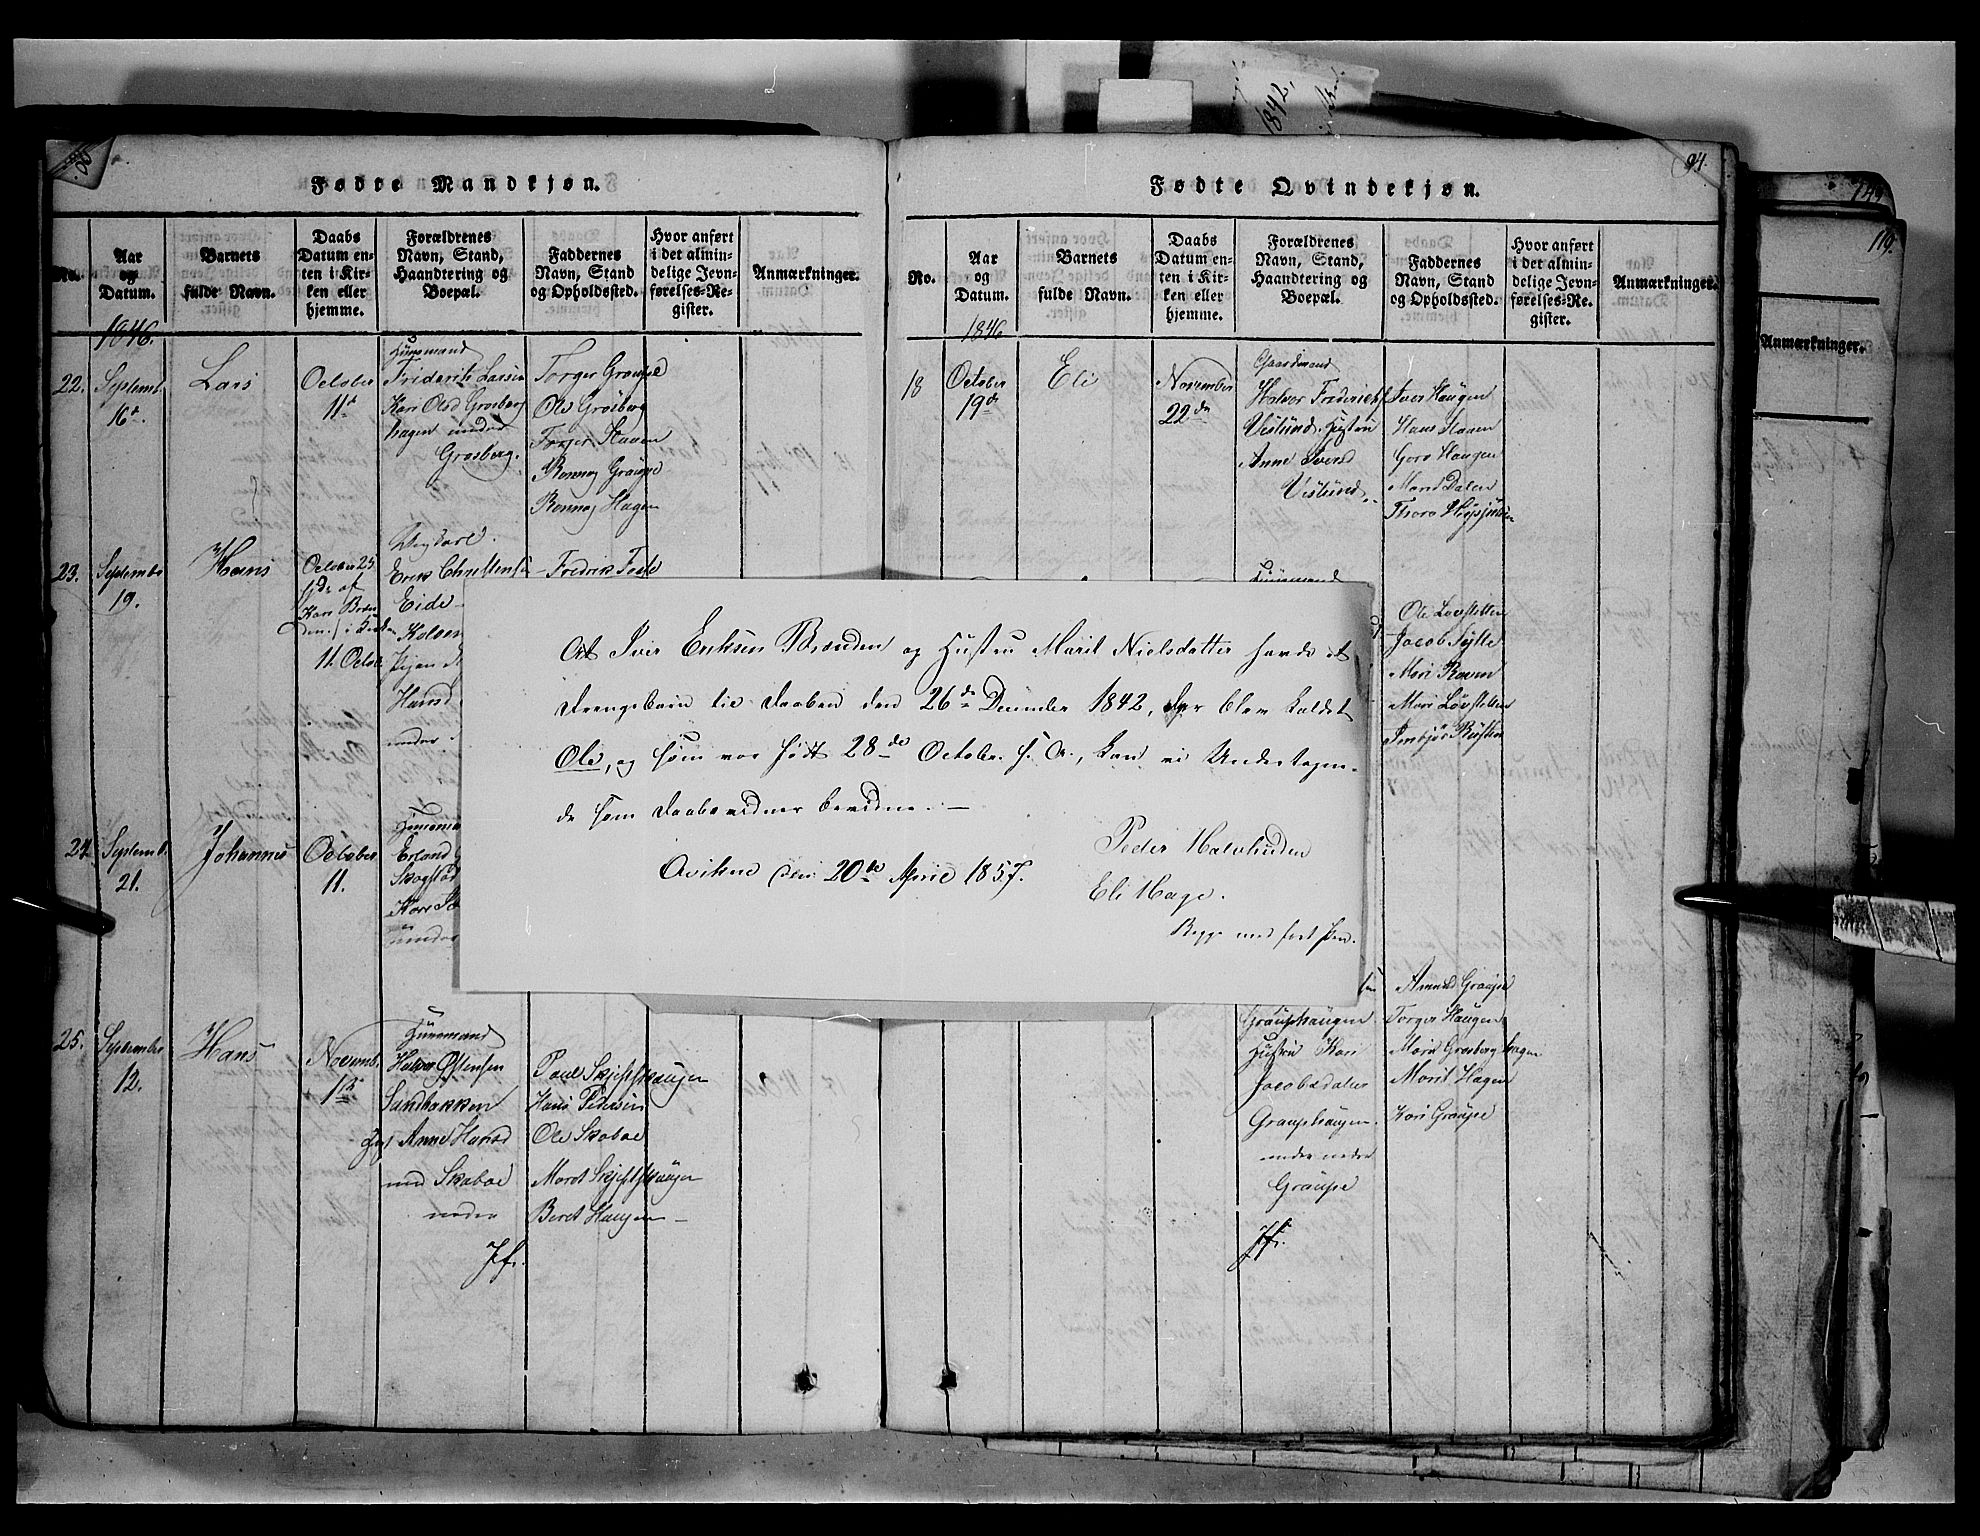 Fødte Mandkjøn.
No.
Aar og Datum.
Barnets fulde Navn.
Daabs Datum enten i Kirken eller hjemme.
Forældrenes Navn, Stand, Haandtering og Boepæl.
Faddernes Navn, Stand og Opholdssted.
Hvor anført i det almindelige Jevnførelses-Register.
Anmærkninger.
1846.
22.
Septemb.
16de
Lars
October
11te
Huusmand
Friderik Larsen
Kari Olsd Grosberg
hagen under
Grosberg.
Torger Graupe
Ole Grosberg
Torger Staven
Ronnog Graupe
Ronnog Hagen
23.
Septembr
19.
Hans
October 25
11 Octob.
Ungkarl.
Erik Christensen
Eide
Hansd
under
Fredrik
24
Septemb.
21.
Johannes
October
11.
Huusma
Erland
Kari
under
25.
Septembr
12.
Hans
Novemb.
1ste
Huusmand
Halvor Østensen
Sandbakken
Anne Hansd
Skaboe
nedre
Jfr.
Paul Skjefthaugen
Hans Pedersen
Ole Skaboe
Marit Skjefthaugen
Beret Haugen
Fødte Qvindekjøn.
94.
No.
Aar og Datum.
Barnets fulde Navn.
Daabs Datum enten i Kirken eller hjemme.
Forældrenes Navn, Stand, Haandtering og Boepæl.
Faddernes Navn, Stand og Opholdssted.
Hvor anført i det almindelige Jevnførelses-Register.
Anmærkninger.
1846
18
October
19de
Eli
November
22de
Gaardmand
Halvor Frederichs
Vislund Hustru
Anne Iversd
Vislund
Iver Haugen
Hans Staven
Goro Haugen
Marit Dalen
Thora
Huusmand
Ole Løvsletten
Jacob Sylte
Mari Raven
Mari Løvsletten
Grauphaugen
Hustru Kari
Jacobsdatter
Grauphaugen
under nedre
Graupe
Jfr.
Amund Graupe
Torger Haugen
Mari Grosberghagen
Marit Hagen
Kari Graupe
At Iver Eriksen Brænden og Hustru Marit Nielsdatter havde et
Drengebarn til Daaben den 26de December 1842, der blev kaldet
Ole, og som var født 28de October s. A., kan vi Undertegne-
de som Daabsvidner bevidne. —
Peder Halvliuden
Qvikne den 20de April 1857.
Eli Hage.
Begge med ført Pen.
119.
Anmærkninger.
1842,